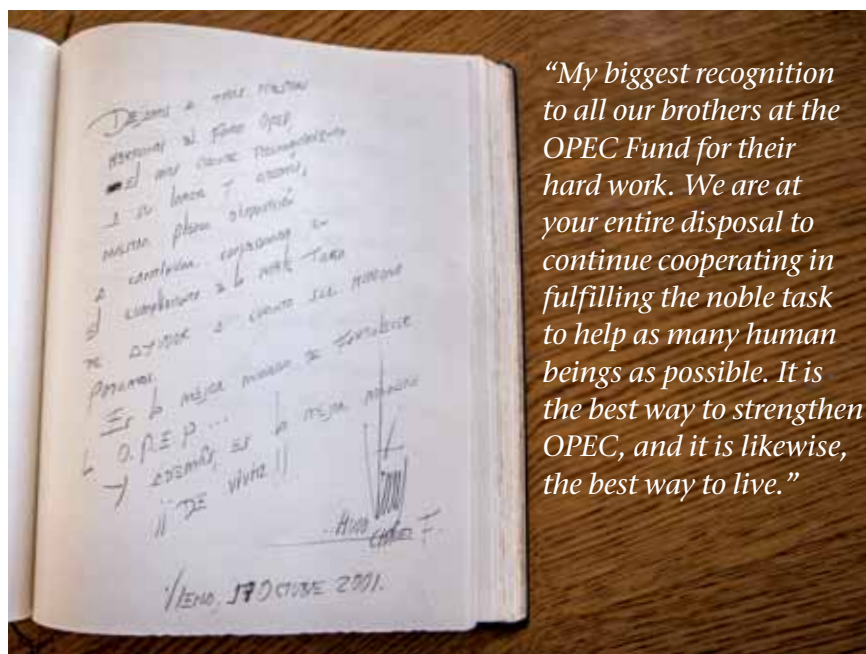 a todos nuestros
hermanos del Fondo OPEP,
el más grande reconocimiento
a su labor y
nuestra plena disposición
a continuar cooperando en
el cumplimiento de la noble tarea
de ayudar a cuanto ser humano
podamos.
Es la mejor manera de fortalecer
la O.P.E.P...
y además, es la mejor manera
¡¡ DE VIVIR !!
HUGO
CHÁVEZ F.
17 OCTUBRE 2001.
“My biggest recognition
to all our brothers at the
OPEC Fund for their
hard work. We are at
your entire disposal to
continue cooperating in
fulfilling the noble task
to help as many human
beings as possible. It is
the best way to strengthen
OPEC, and it is likewise,
the best way to live.”